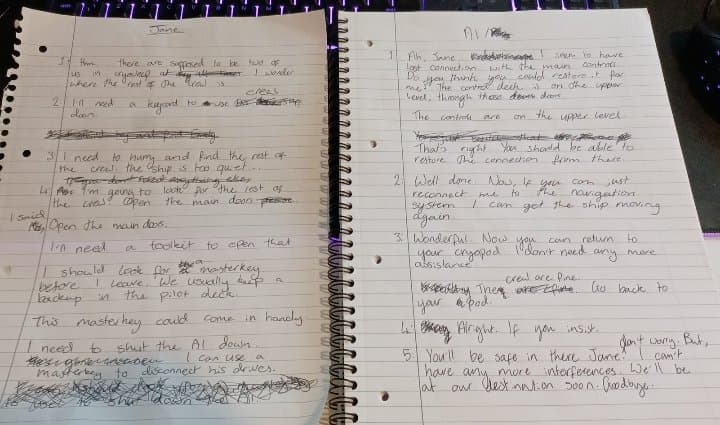 Jane
1 Hm. there are supposed to be two of
us in cryosleep at I wonder
where the rest of the crew is
2 I'll need a keycard to use crew's
door.
3 I need to hurry and find the rest of
the crew. the ship is too quiet...
4. I'm going to look for the rest of
the crew. Open the main door.
I said, Open the main doors.
I'll need a toolkit to open that
I should look for a masterkey
before I leave. We usually keep a
backup in the pilot deck.
This masterkey could come in handy
I need to shut the AI down.
I can use a
masterkey to disconnect his drives.
to shut down the AI
AI /
1 Ah, Jane. I seem to have
lost connection with the main controls.
Do you think you could restore it for
me? The control deck is on the upper
level, through those doors.
The controls are on the upper level
That's right. You should be able to
restore the connection from there.
2. Well done. Now, if you can just
reconnect me to the navigation
system I can get the ship moving
again.
3. Wonderful. Now you can return to
your cryopod. I don't need any more
assistance.
The crew are fine. Go back to
your pod.
4. Alright. If you insist.
5. You'll be safe in there Jane, don't worry. But, I can't
have any more interferences. We'll be
at our destination soon. Goodbye.